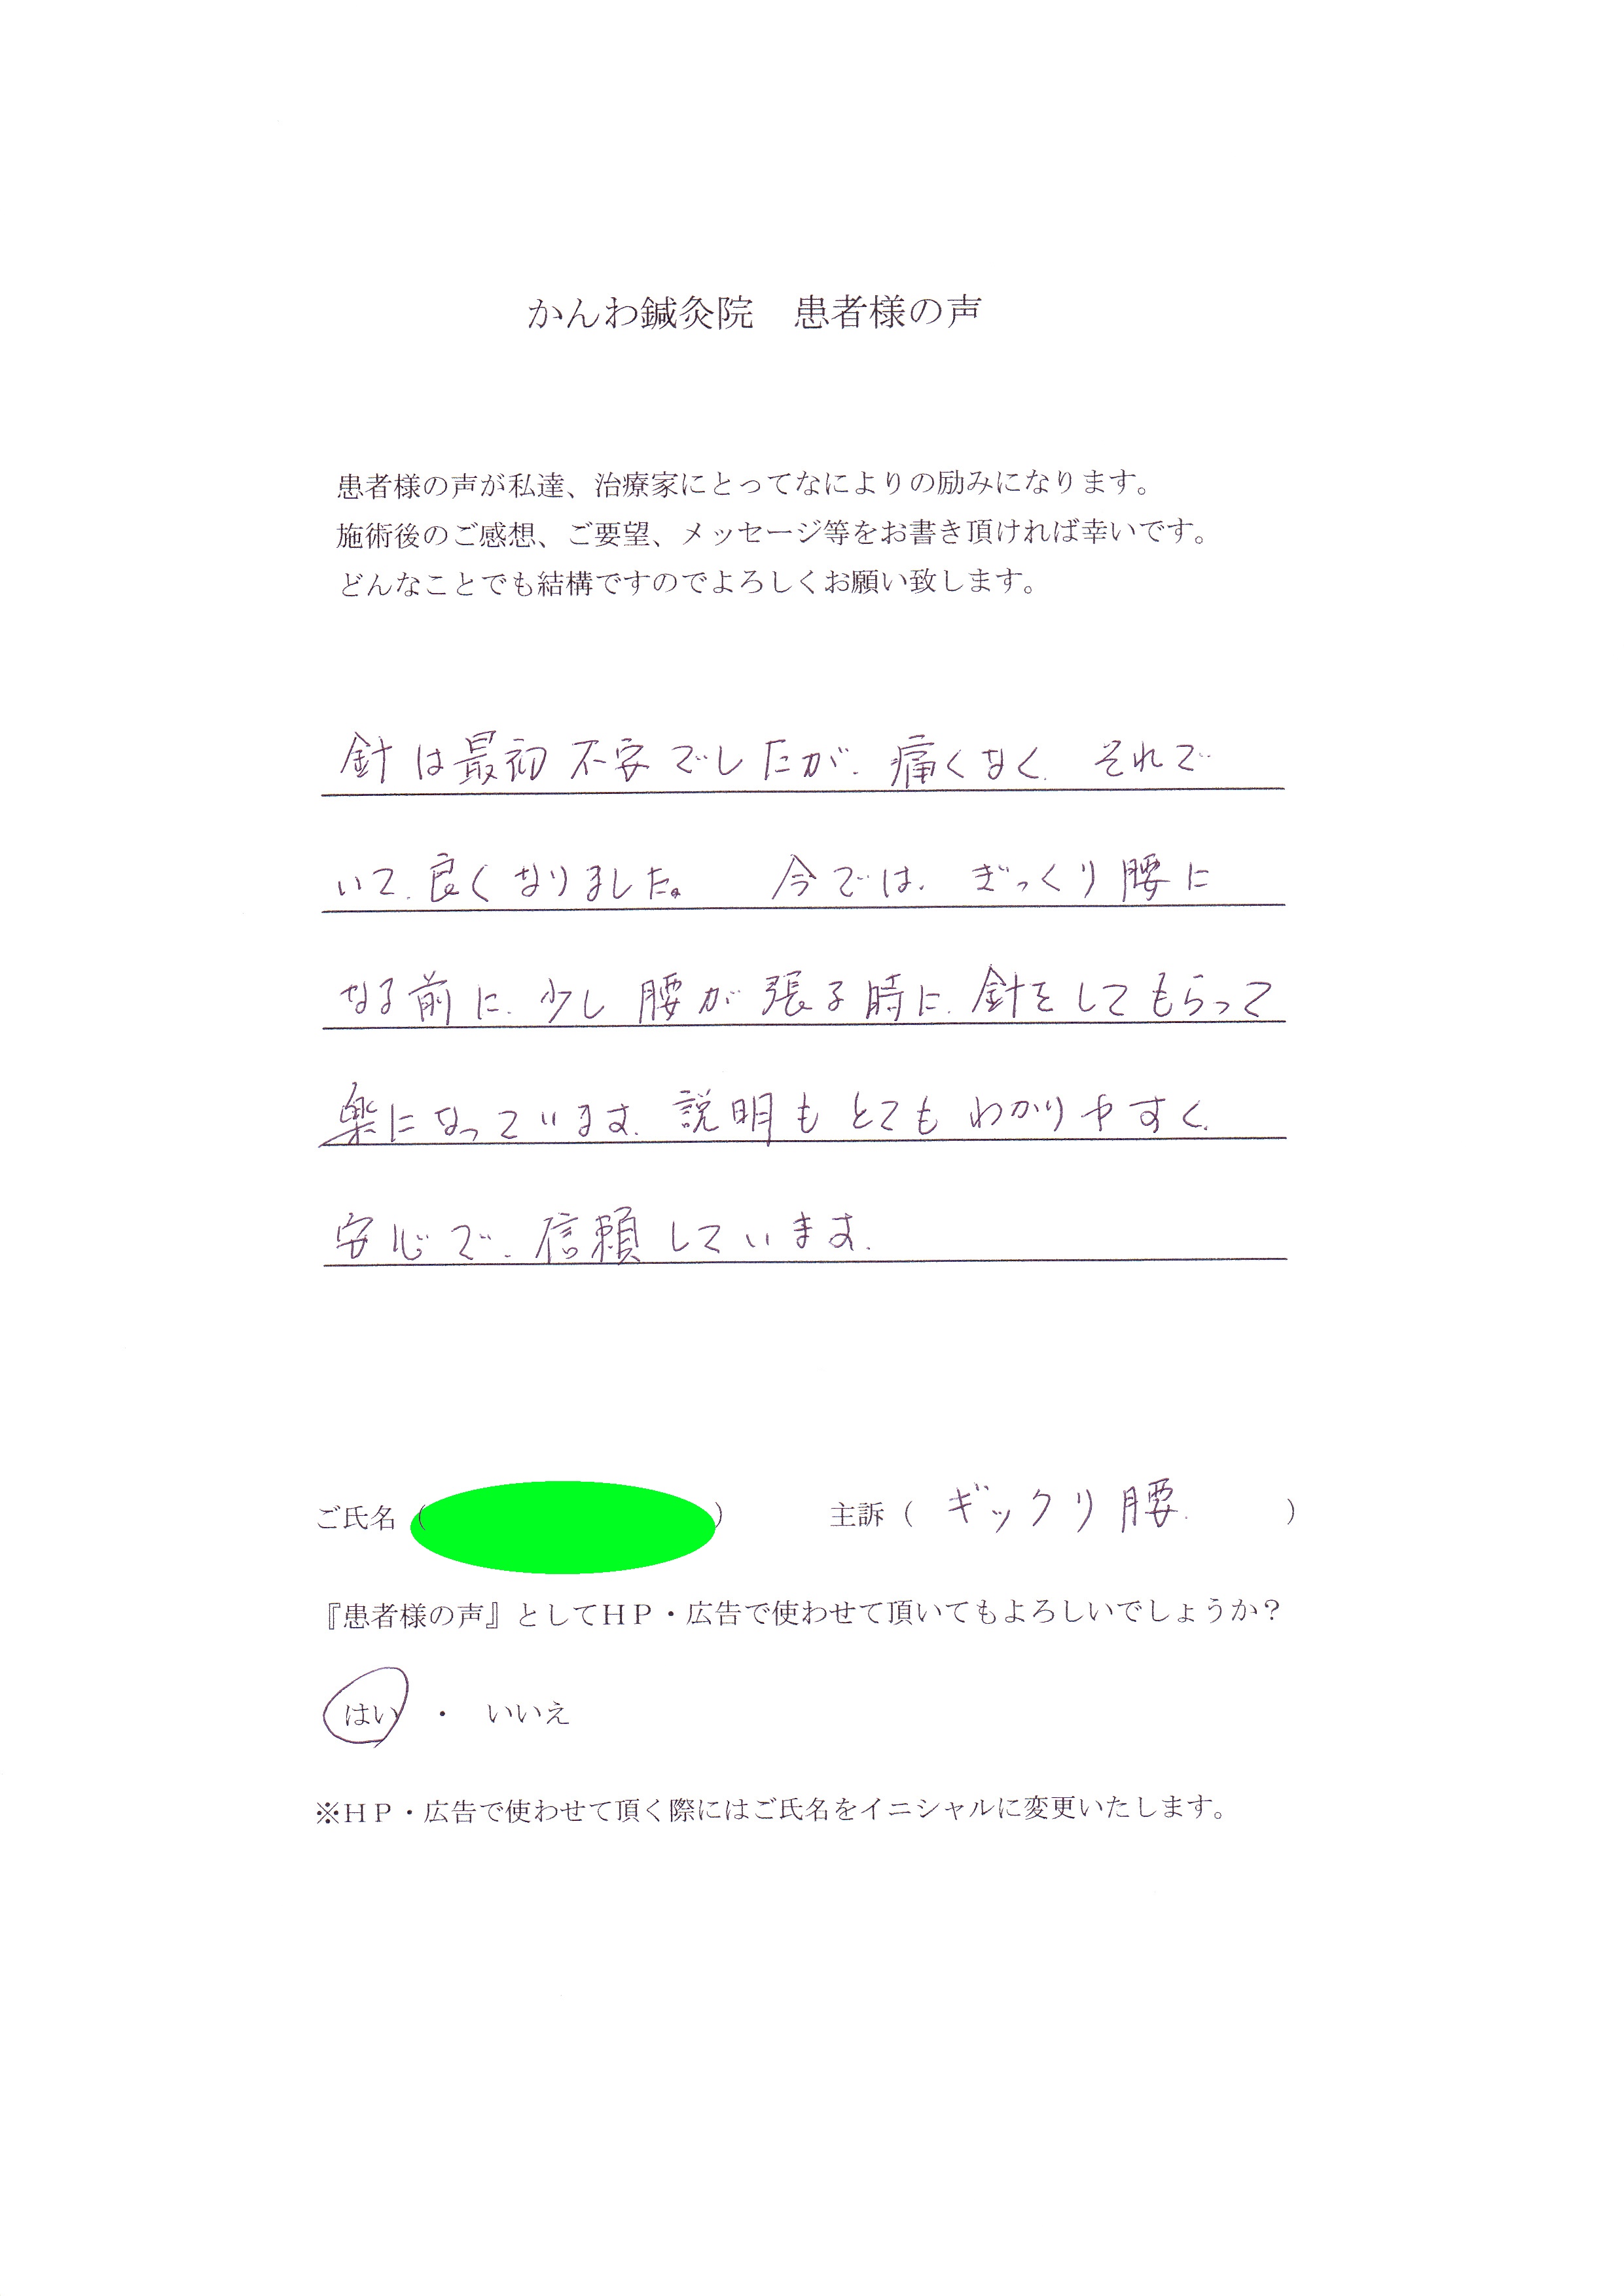 かんわ鍼灸院　患者様の声
患者様の声が私達、治療家にとってなによりの励みになります。
施術後のご感想、ご要望、メッセージ等をお書き頂ければ幸いです。
どんなことでも結構ですのでよろしくお願い致します。
針は最初不安でしたが、痛くなく、それで
いて、良くなりました。　今では、ぎっくり腰に
なる前に、少し腰が張る時に、針をしてもらって
楽になっています。説明もとてもわかりやすく、
安心で、信頼しています。
ご氏名（　　　　　）　　　主訴（ギックリ腰　　）
『患者様の声』としてＨＰ・広告で使わせて頂いてもよろしいでしょうか？
はい　・　いいえ
※ＨＰ・広告で使わせて頂く際にはご氏名をイニシャルに変更いたします。